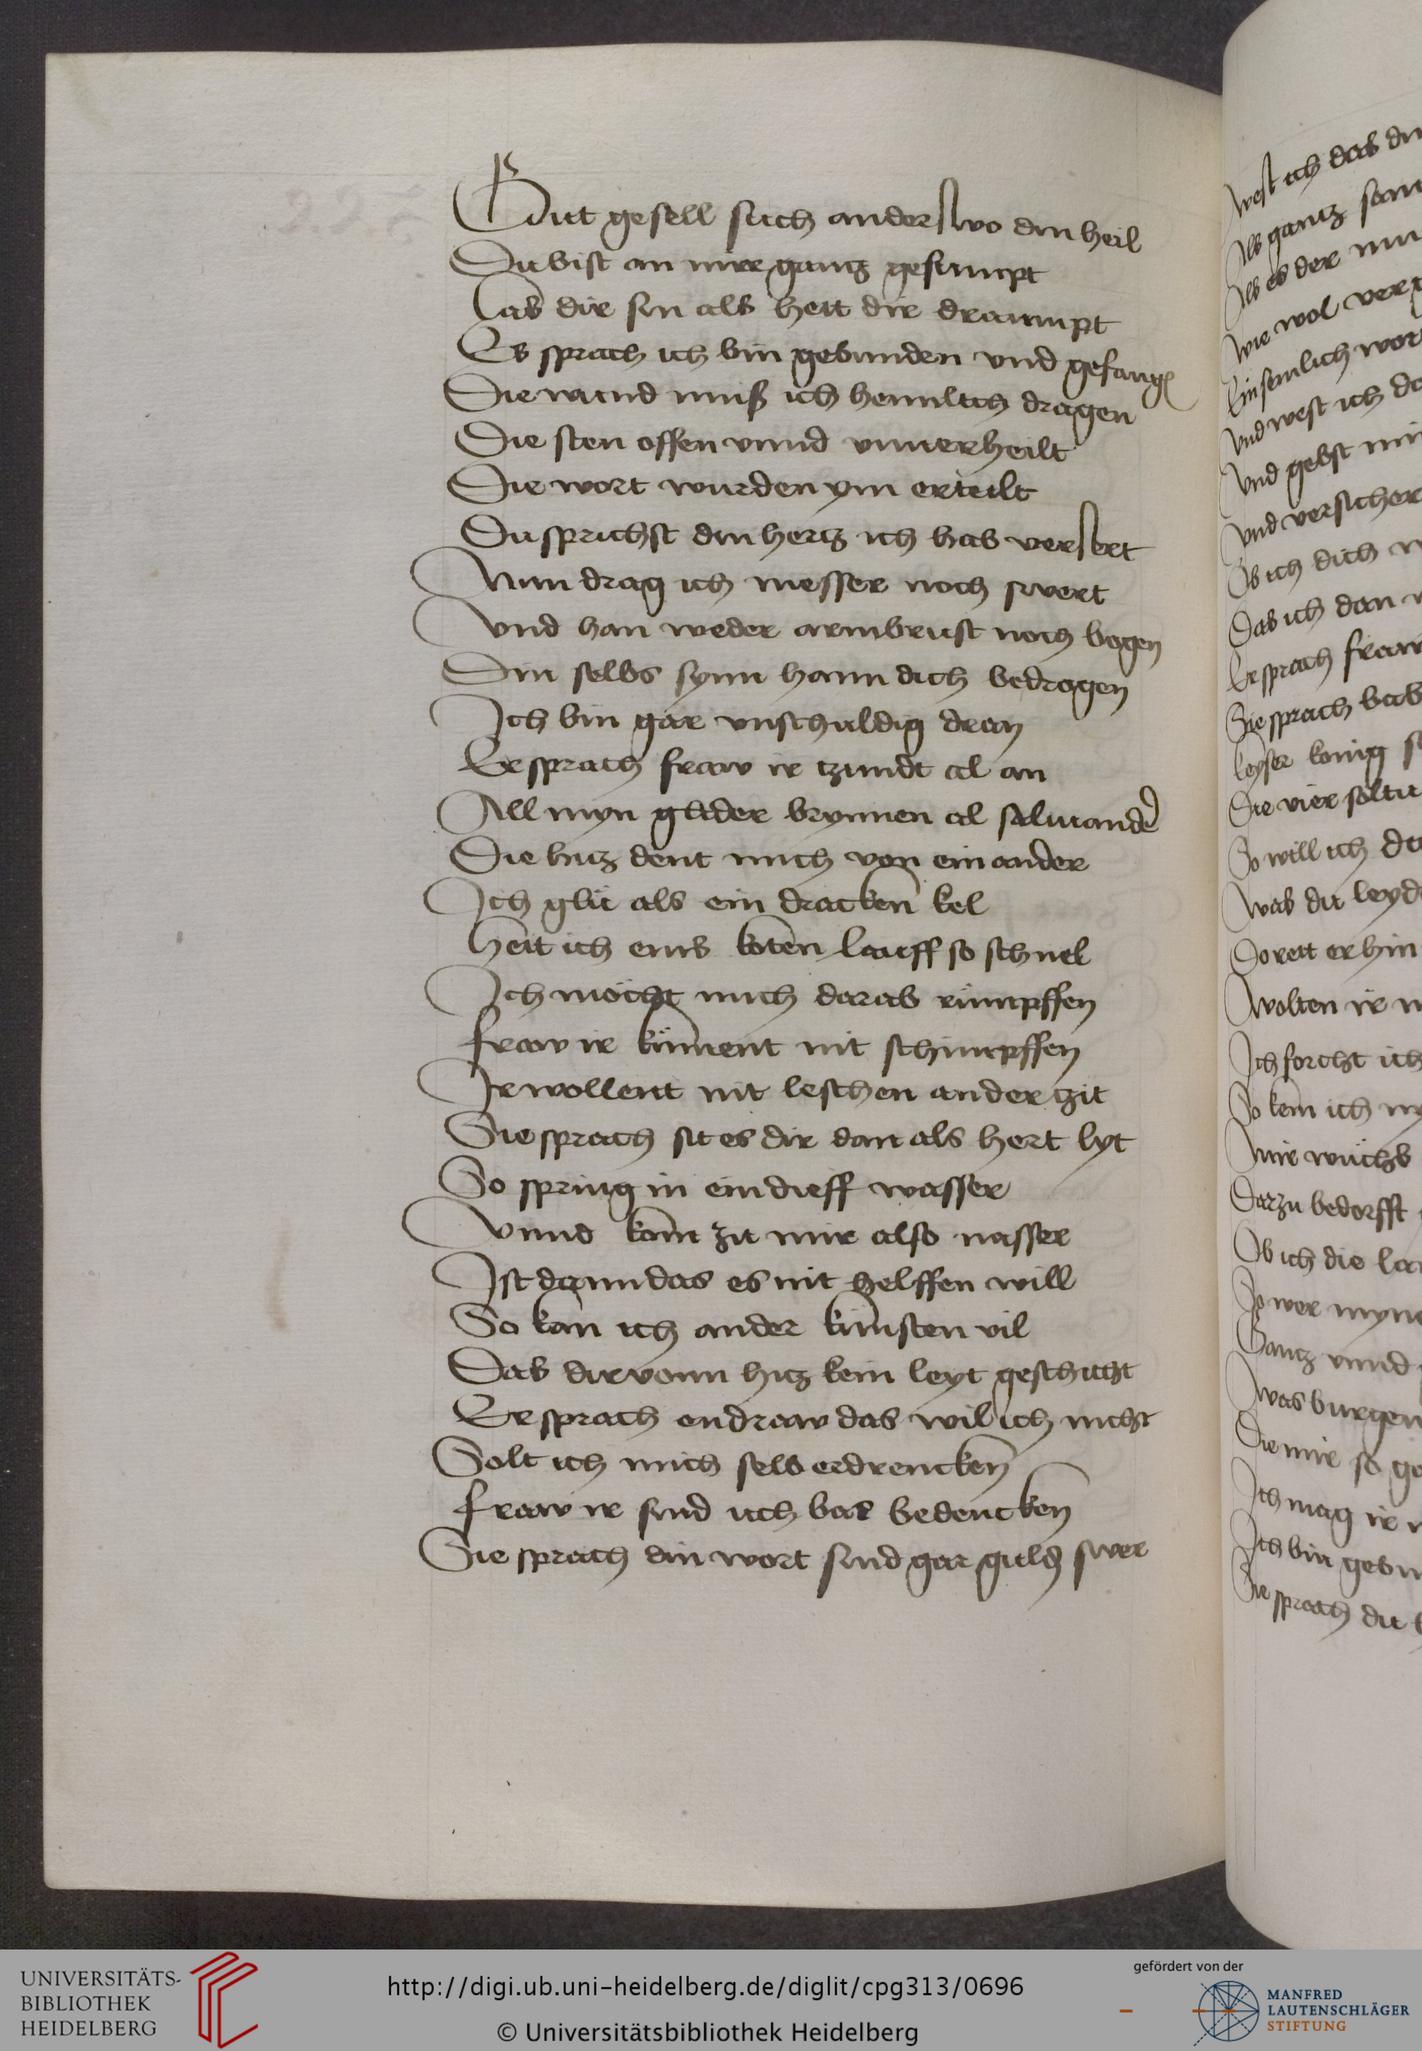 Gut gesell such anderswo din heil
Du bist an mir gantz gesumpt
Las dir sin als hett dir draumpt
Es sprach ich bin gebunden vnd gefangen
Die wund muß ich heimlich dragen
Die sten offen vnnd vnuerheilt
Die wort wurden ym erteilt
Du sprichst din hertz ich hab versert
Nun drag ich messer noch swert
Vnd han weder armbrust noch bogen
Din selbs synn hann dich bedrogen
Ich bin gar vnschuldig dran
Er sprach fraw ir tzundt al an
All myn glider brynnen al salmander
Die hitz dent mich von ein ander
Ich glü als ein dracken kel
Hett ich eins koten lauff so schnel
Ich möcht mich darab rümpffen
fraw ir kument nit schimpffen
Ir wollent nit leschen ander tzit
Sie sprach sit es dir dan als hert lyt
So spring in ein dieff wasser
Vnnd kom zu mir also nasser
Ist dann das es nit helffen will
So kan ich ander künsten vil
Das dir vonn hitz kein leyt geschicht
Er sprach endraw das wil ich nicht
Solt ich mich selb erdrencken
fraw ir sind uch bas bedencken
Sie sprach din wort sind gar swer
West ich das
Als gantz
Als es der
Wie wol
Ein semlich
Vnd west ich
Vnd gebst
Vnd versicher
Ob ich dich
Das ich dan
Er sprach fraw
Sie sprach
keyser konig
Die vier
So will ich
Was du leyd
Do rett er hin
Wolten ir
Ich forcht ich
So kem ich
Mir wuchs
Darzu bedorfft
Ob ich die
So wer myn
Gantz vnnd
Was burgen
Die mir so
Ich mag ir
Ich bin
Sie sprach du
UNIVERSITÄTS-
BIBLIOTHEK
HEIDELBERG
http://digi.ub.uni-heidelberg.de/diglit/cpg313/0696
© Universitätsbibliothek Heidelberg
gefördert von der
MANFRED
LAUTENSCHLÄGER
STIFTUNG